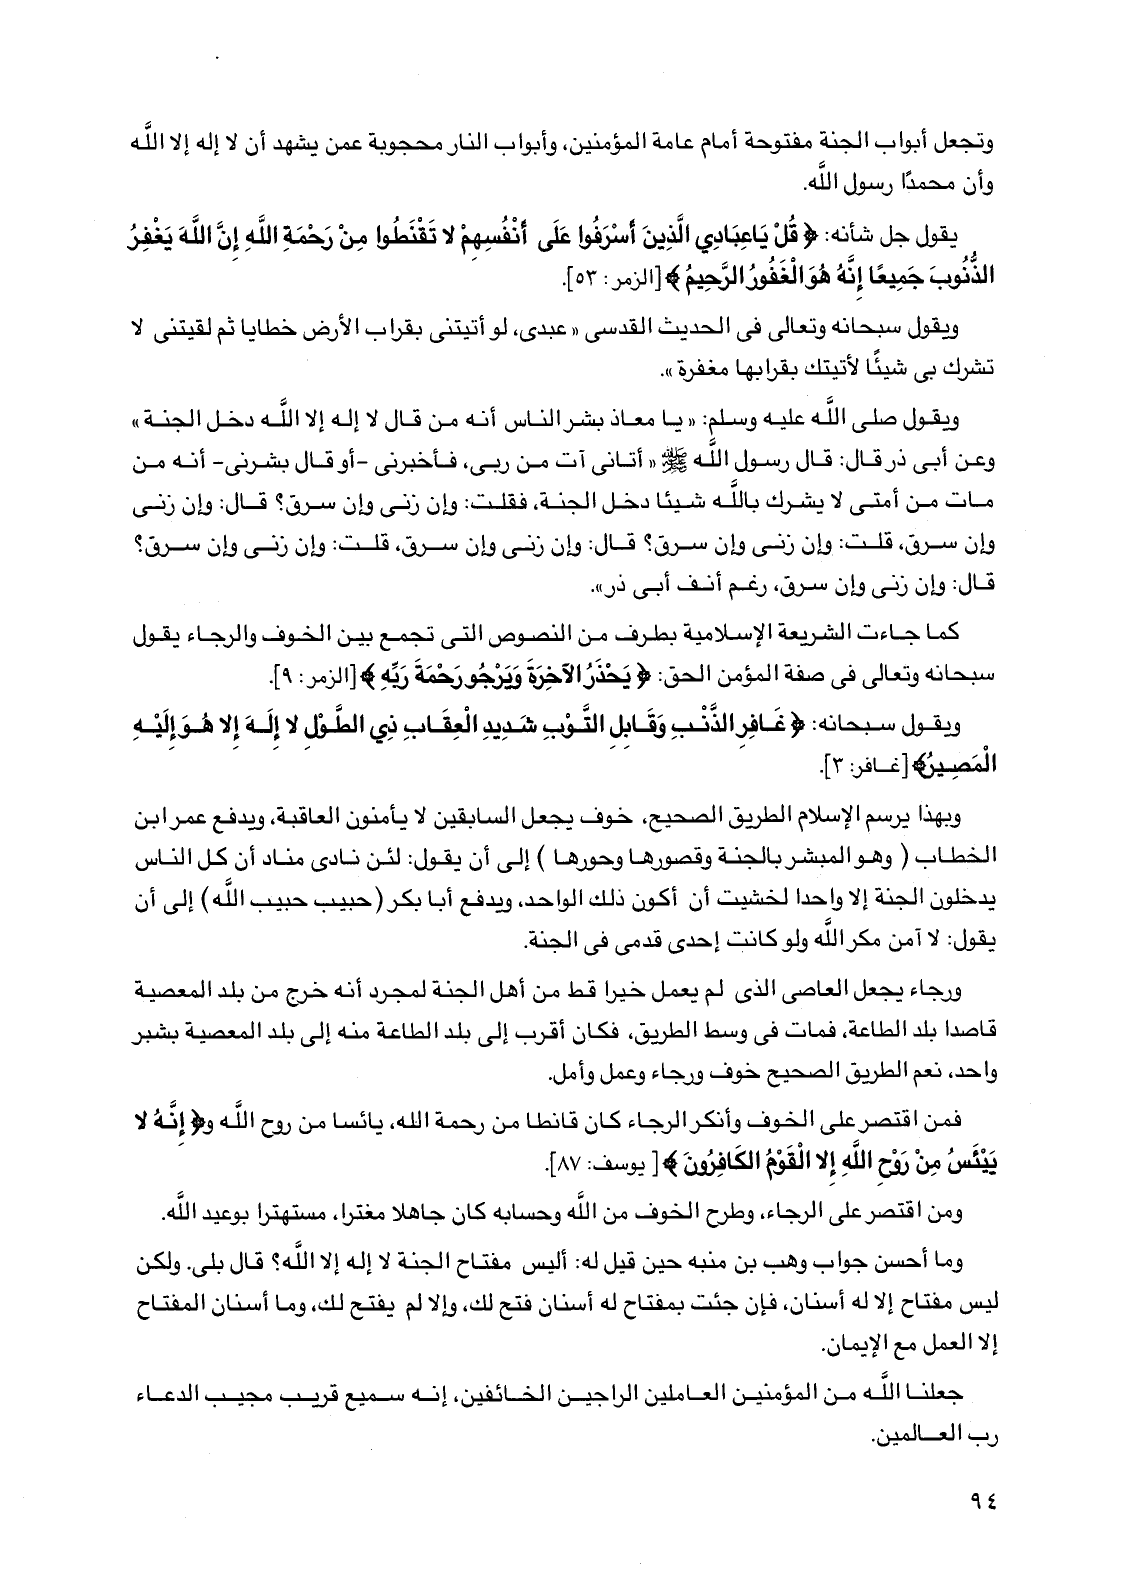 وتجعل أبواب الجنة مفتوحة أمام عامة المؤمنين، وأبواب النار محجوبة عمن يشهد أن لا إله إلا اللَّه
وأن محمدًا رسول اللَّه.
يقول جل شأنه: ﴿ قُلْ يَاعِبَادِي الَّذِينَ أَسْرَفُوا عَلَى أَنْفُسِهِمْ لا تَقْنَطُوا مِنْ رَحْمَةِ اللَّهِ إِنَّ اللَّهَ يَغْفِرُ
الذُّنُوبَ جَمِيعًا إِنَّهُ هُوَ الْغَفُورُ الرَّحِيمُ ﴾ [الزمر: ٥٣].
ويقول سبحانه وتعالى فى الحديث القدسى « عبدى، لو أتيتنى بقراب الأرض خطايا ثم لقيتنى لا
تشرك بى شيئًا لأتيتك بقرابها مغفرة ».
ويقول صلى اللَّه عليه وسلم: « يا معاذ بشر الناس أنه من قال لا إله إلا اللَّه دخل الجنة »
وعن أبى ذر قال: قال رسول اللَّه ﷺ « أتانى آت من ربى، فأخبرنى -أو قال بشرنى- أنه من
مات من أمتى لا يشرك باللَّه شيئا دخل الجنة، فقلت: وإن زنى وإن سرق؟ قال: وإن زنى
وإن سرق، قلت: وإن زنى وإن سرق؟ قال: وإن زنى وإن سرق، قلت: وإن زنى وإن سرق؟
قال: وإن زنى وإن سرق، رغم أنف أبى ذر».
كما جاءت الشريعة الإسلامية بطرف من النصوص التى تجمع بين الخوف والرجاء يقول
سبحانه وتعالى فى صفة المؤمن الحق: ﴿ يَحْذَرُ الآخِرَةَ وَيَرْجُو رَحْمَةَ رَبِّهِ ﴾ [الزمر: ٩].
ويقول سبحانه: ﴿ غَافِرِ الذَّنْبِ وَقَابِلِ التَّوْبِ شَدِيدِ الْعِقَابِ ذِي الطَّوْلِ لا إِلَهَ إِلا هُوَ إِلَيْهِ
الْمَصِيرُ﴾ [غافر: ٣].
وبهذا يرسم الإسلام الطريق الصحيح، خوف يجعل السابقين لا يأمنون العاقبة، ويدفع عمر ابن
الخطاب ( وهو المبشر بالجنة وقصورها وحورها ) إلى أن يقول: لئن نادى مناد أن كل الناس
يدخلون الجنة إلا واحدا لخشيت أن أكون ذلك الواحد، ويدفع أبا بكر (حبيب حبيب اللَّه) إلى أن
يقول: لا آمن مكر اللَّه ولو كانت إحدى قدمى فى الجنة.
ورجاء يجعل العاصى الذى لم يعمل خيرا قط من أهل الجنة لمجرد أنه خرج من بلد المعصية
قاصدا بلد الطاعة، فمات فى وسط الطريق، فكان أقرب إلى بلد الطاعة منه إلى بلد المعصية بشبر
واحد، نعم الطريق الصحيح خوف ورجاء وعمل وأمل.
فمن اقتصر على الخوف وأنكر الرجاء كان قانطا من رحمة الله، يائسا من روح اللَّه و﴿ إِنَّهُ لا
يَيْئَسُ مِنْ رَوْحِ اللَّهِ إِلا الْقَوْمُ الكَافِرُونَ ﴾ [ يوسف: ٨٧].
ومن اقتصر على الرجاء، وطرح الخوف من اللَّه وحسابه كان جاهلا مغترا، مستهترا بوعيد اللَّه.
وما أحسن جواب وهب بن منبه حين قيل له: أليس مفتاح الجنة لا إله إلا اللَّه؟ قال بلى. ولكن
ليس مفتاح إلا له أسنان، فإن جئت بمفتاح له أسنان فتح لك، وإلا لم يفتح لك، وما أسنان المفتاح
إلا العمل مع الإيمان.
جعلنا اللَّه من المؤمنين العاملين الراجين الخائفين، إنه سميع قريب مجيب الدعاء
رب العالمين.
٩٤